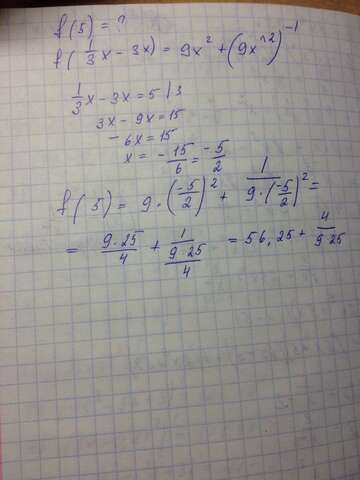 f(5) = ?
f( 1/3 x - 3x) = 9x² + (9x^2)^-1
1/3 x - 3x = 5 | 3
3x - 9x = 15
- 6x = 15
x = - 15/6 = -5/2
f( 5) = 9 · (-5/2)² + 1/(9 · (-5/2)²) =
= 9·25/4 + 1/(9·25/4) = 56,25 + 4/(9·25)